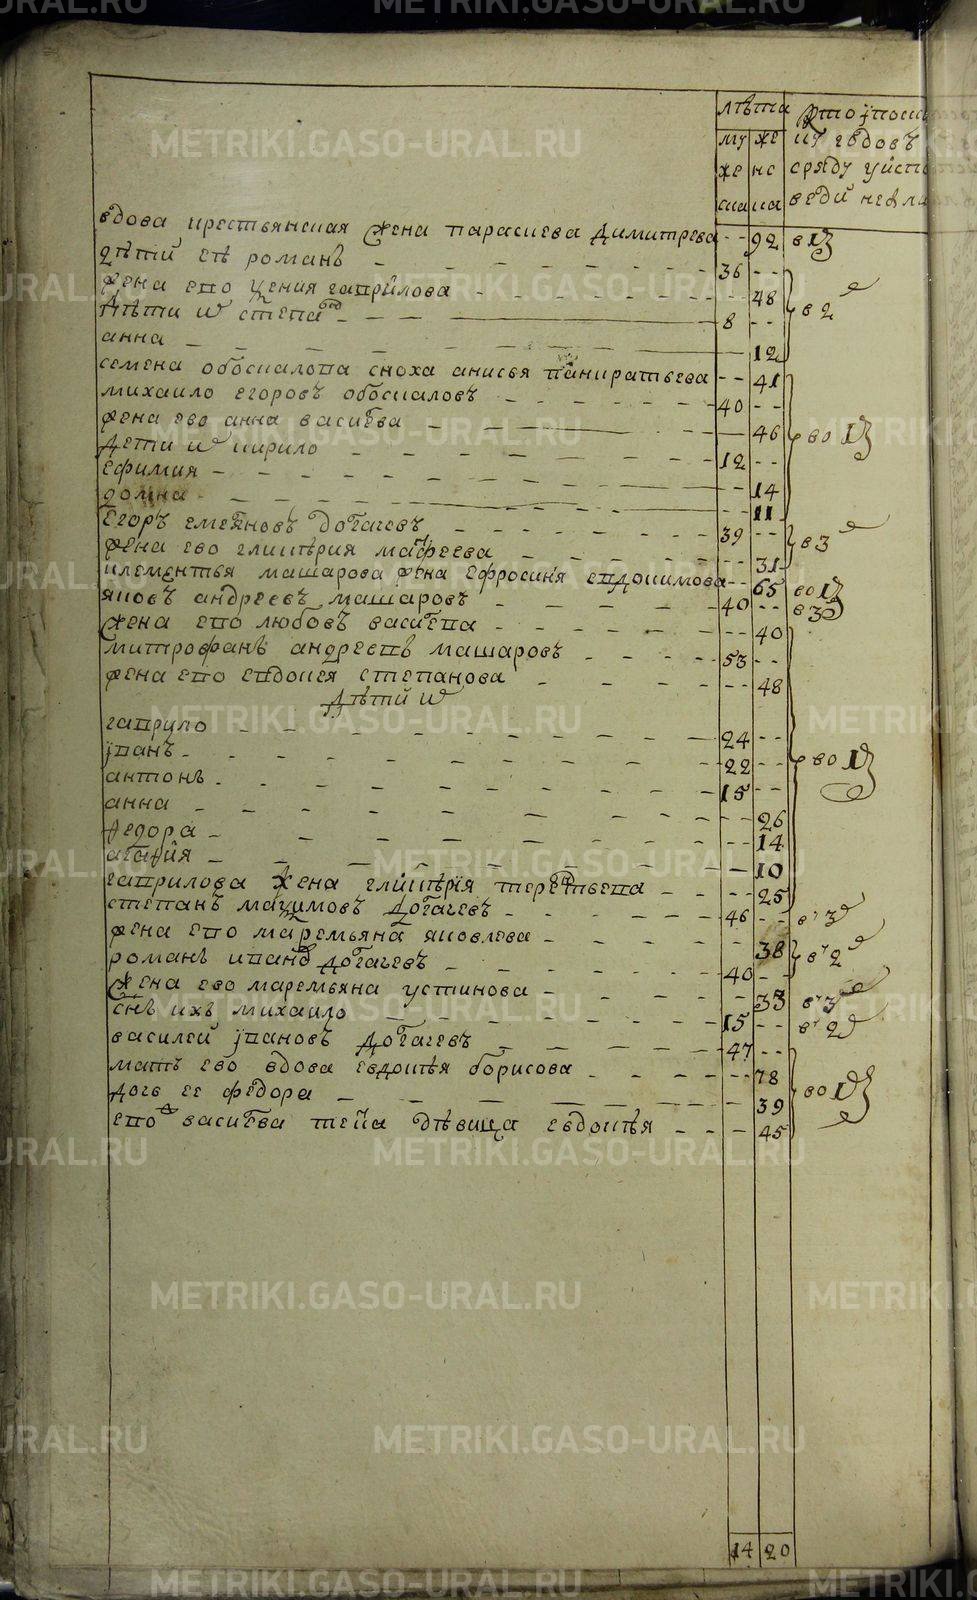 лѣта
му же
же нс
ска ка
кто упом
ну гдовъ
сряду уисп
веди небы
вдова крестьянская жена параскева димитрева -- 92 в 13
дѣти еѣ романъ 36 --
жена ево ксения гаврилова -- 48 в 2
дѣти и степа 8 --
анна 12
семена обоскалова сноха анисья панкратьева -- 41
михаило егоровъ обоскаловъ 40 --
жена ево анна васильева 46 во 13
дети и кирило 12 --
ефимия -- 14
домна -- 11
егоръ емельяновъ догачевъ 39 -- в 3
жена ево гликѣрия мафеева -- 31
клементья машарова жена ефросинья евдокимова -- 65 во 13
яковъ андреевъ машаровъ 40 -- в 3
жена ево любовъ васильева -- 40
митрофанъ андреевъ машаровъ 53 --
жена ево евдокея степанова -- 48
дѣти и
гаврило 24 --
иванъ 22 -- во 13
антонъ 15 --
анна -- 26
федора -- 14
агафия 10
гаврилова жена гликѣрия терентьева -- 25
степанъ максимовъ догачевъ 46 -- в 3
жена ево маремьяна яковлева -- 38
романъ иванов догачевъ 40 -- в 2
жена ево маремьяна устинова -- 33 в 3
снъ ихъ михаило 15 -- в 2
василей ивановъ догачевъ 47 --
мать ево вдова евдокѣя борисова -- 78
дочь ее федора -- 39 во 13
ево васильева тетка дѣвица евдокѣя -- 45
14 20
METRIKI.GASO-URAL.RU